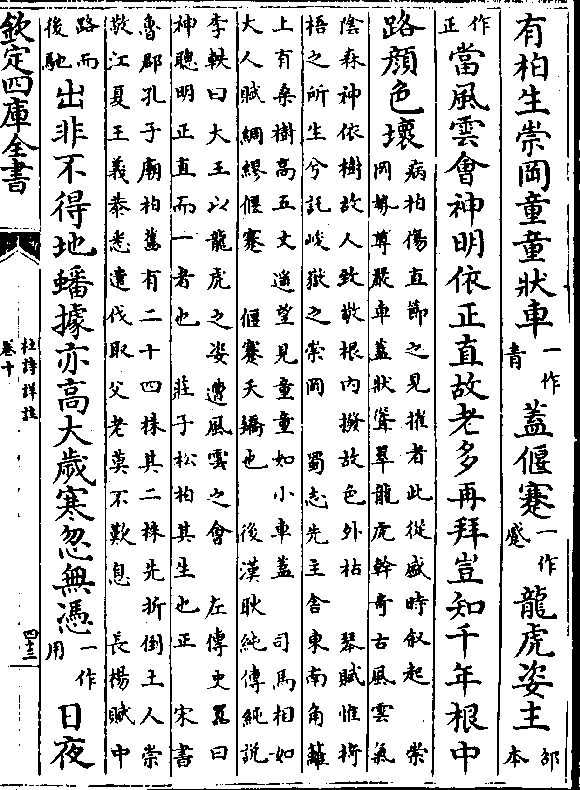 有柏生崇岡童童狀車一作青蓋偃蹇一作蹙龍虎姿主邵本
作正當風雲會神明依正直故老多再拜豈知千年根中
路顏色壞病柏傷直節之見摧者此從盛時叙起 崇
岡勢尊嚴車蓋狀聳翠龍虎幹奇古風雲氣
陰森神依樹故人致敬根内撥故色外枯 琴賦惟椅
梧之所生兮託峻嶽之崇岡 蜀志先主舍東南角籬
上有桑樹高五丈遥望見童童如小車蓋 司馬相如
大人賦綢繆偃蹇 偃蹇夭矯也 後漢耿純傳純説
李軼曰大王以龍虎之姿遭風雲之會 左傳史嚚曰
神聰明正直而一者也 莊子松柏其生也正 宋書
魯郡孔子廟柏舊有二十四株其二株先折倒王人崇
敬江夏王義恭悉遣伐取父老莫不歎息 長楊賦中
路而後馳出非不得地蟠據亦高大歲寒忽無憑一作用日夜
欽定四庫全書
杜詩詳註
卷十
四十三